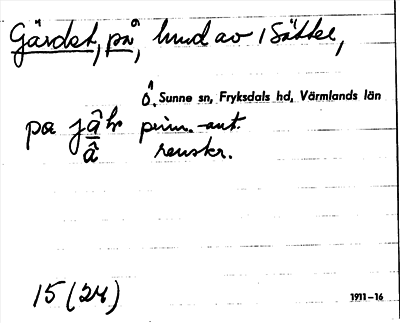 Gärdet, på, hund av 1 Sättel,
Ö. Sunne sn, Fryksdals hd, Värmlands län
pa jâhr prim.-ant.
â renskr.
15 (24)
1911-16